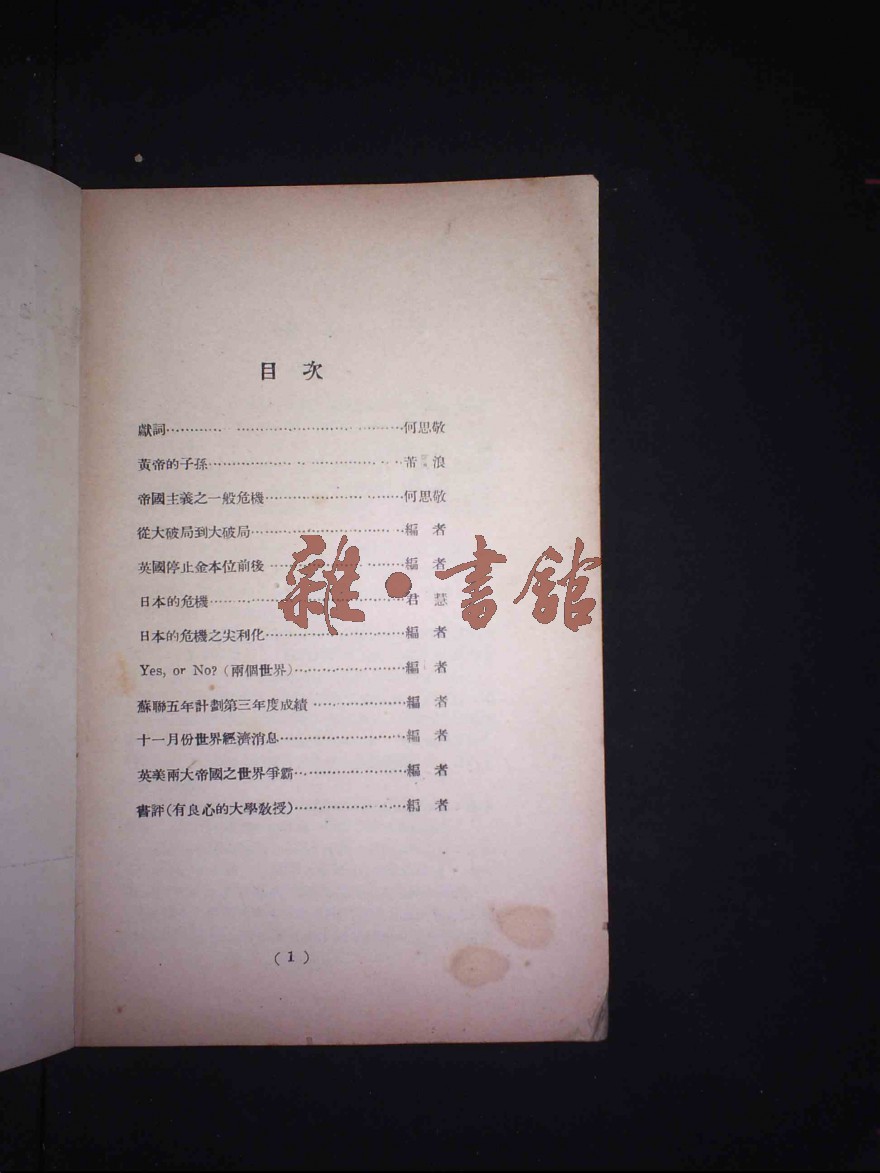 目 次
獻詞………………………………何思敬
黃帝的子孫…………………………浪
帝國主義之一般危機…………………何思敬
從大破局到大破局……………………編 者
英國停止金本位前後…………………編 者
日本的危機…………………………君 慧
日本的危機之尖利化…………………編 者
Yes, or No?(兩個世界)………………編 者
蘇聯五年計劃第三年度成績……………編 者
十一月份世界經濟消息………………編 者
英美兩大帝國之世界爭霸………………編 者
書評(有良心的大學教授)………………編 者
(1)
雜·書館